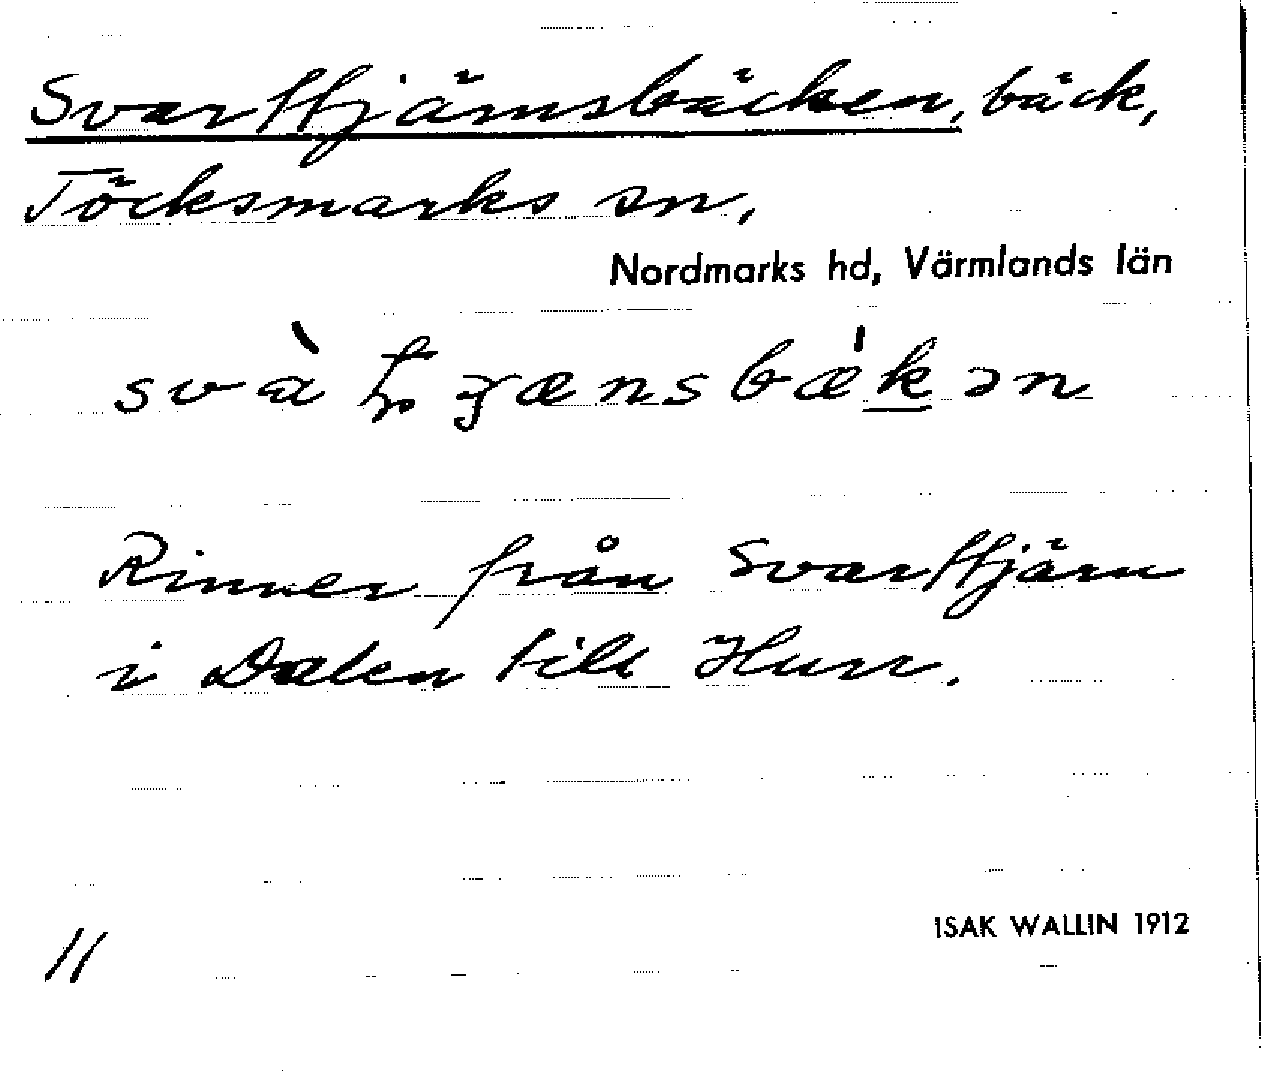 Svarttjärnsbäcken, bäck,
Töcksmarks sn,
Nordmarks hd, Värmlands län
Rinner från Svarttjärn
i Dalen till Hurr.
ISAK WALLIN 1912
11